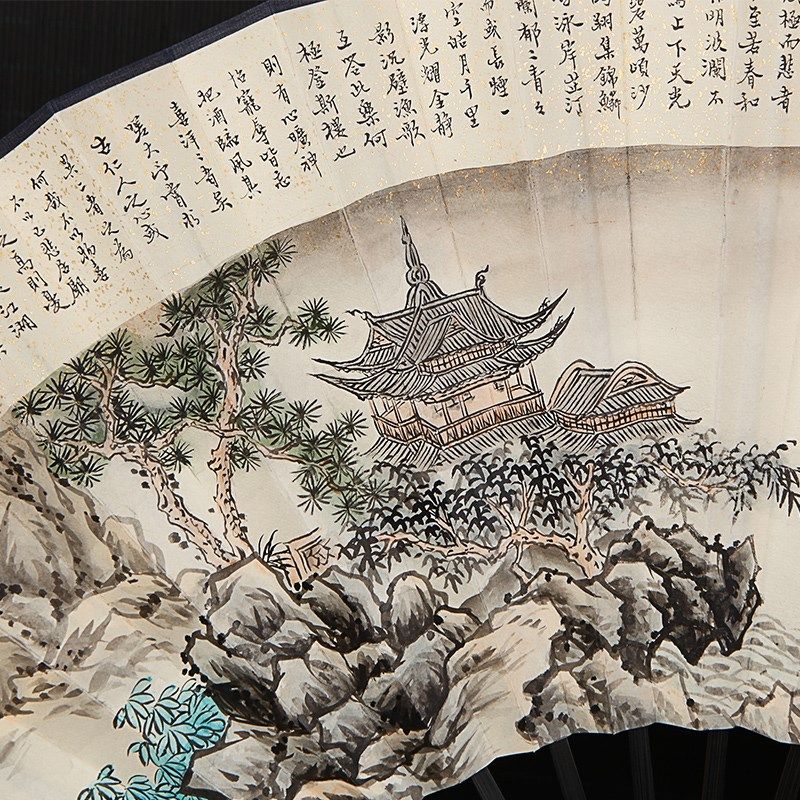 極而悲者
至若春和
明波瀾不
上下天光
碧萬頃沙
翔集錦鱗
泳岸芷汀
蘭郁々青々
而或長煙一
空皓月千里
浮光耀金静
影沉璧漁歌
互答此樂何
極登斯樓也
則有心曠神
怡寵辱皆忘
把酒臨風其
喜洋々者矣
嗟夫予嘗求
古仁人之心或
異二者之為
何哉不以物喜
不以己悲居廟
之高則憂
江湖